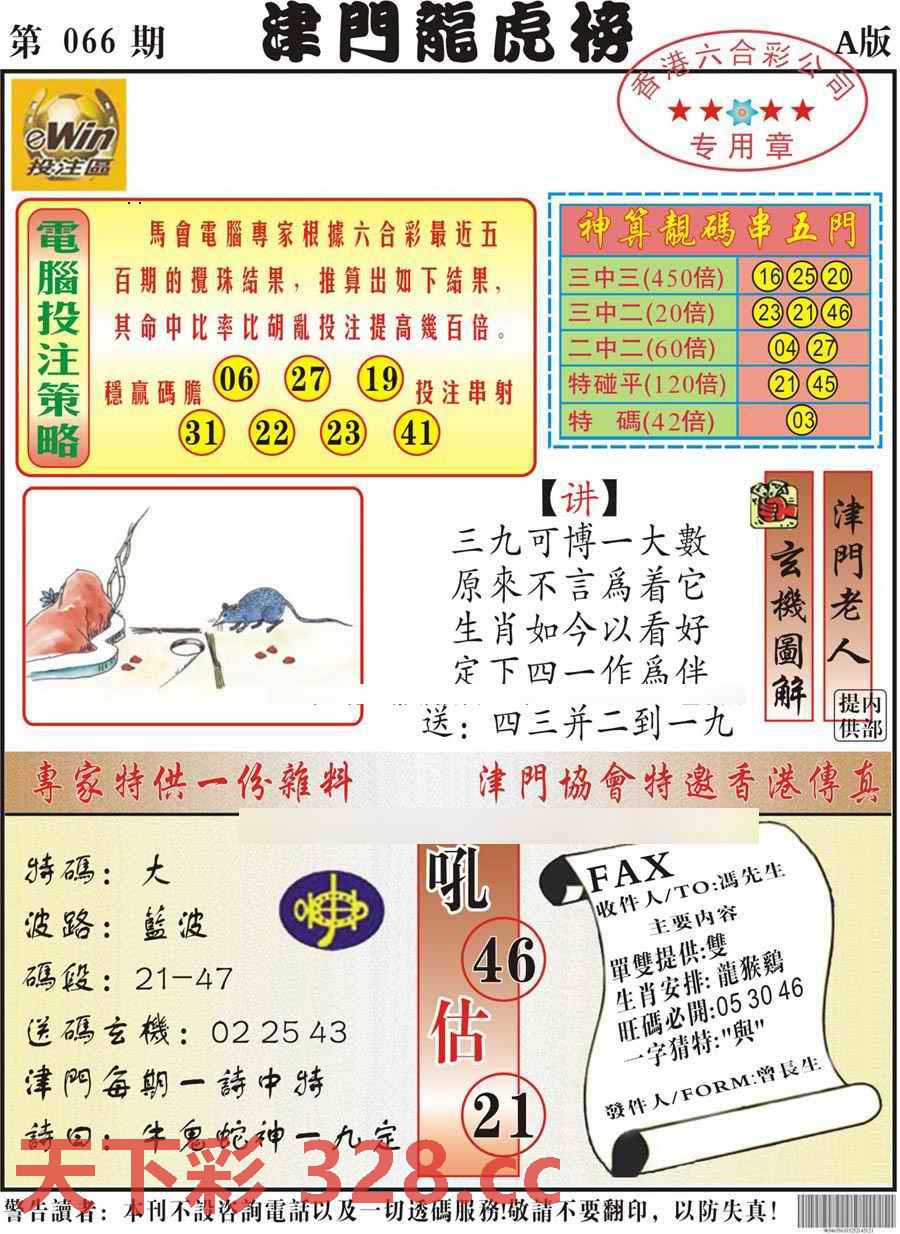 第 066 期
津門龍虎榜
A版
香港六合彩公司
专用章
eWin
投注區
電腦投注策略
馬會電腦專家根據六合彩最近五
百期的攪珠結果，推算出如下結果，
其命中比率比胡亂投注提高幾百倍。
穩贏碼膽 06 27 19 投注串射
31 22 23 41
神算靚碼串五門
三中三(450倍) 16 25 20
三中二(20倍) 23 21 46
二中二(60倍) 04 27
特碰平(120倍) 21 45
特 碼(42倍) 03
【讲】
三九可博一大數
原來不言爲着它
生肖如今以看好
定下四一作爲伴
送：四三并二到一九
玄機圖解
津門老人
内部提供
專家特供一份雜料
津門協會特邀香港傳真
特碼：大
波路：藍波
碼段：21-47
送碼玄機：02 25 43
津門每期一詩中特
詩曰：牛鬼蛇神一九定
吼
46
估
21
FAX
收件人/TO:馮先生
主要内容
單雙提供:雙
生肖安排:龍猴鷄
旺碼必開:05 30 46
一字猜特:"與"
發件人/FORM:曾長生
天下彩 328.cc
警告讀者：本刊不設咨詢電話以及一切透碼服務!敬請不要翻印，以防失真!